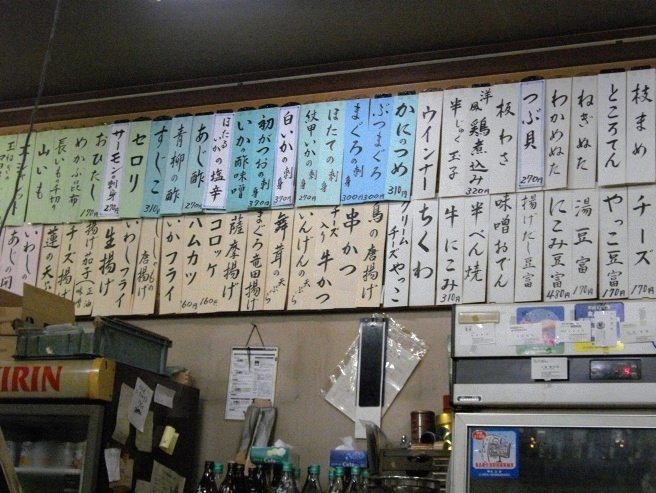 枝まめ
ところてん
ねぎぬた
わかめぬた
つぶ貝 270円
板わさ
洋風鶏煮込み 320円
半じゅく玉子
ウインナー
かにのつめ 310円
ぶつまぐろ 300円
まぐろの刺身 300円
ほたての刺身
紋甲いかの刺身 370円
白いかの刺身
初がつおの刺身 320円
いかの酢味噌
ほたるいかの塩辛
あじ酢 270円
青柳の酢
すじこ 310円
セロリ
サーモン刺身 270円
おひたし 170円
めかぶ昆布
長いも千切り
山いも
チーズ 170円
やっこ豆富 170円
湯豆富 170円
にこみ豆富 480円
揚げだし豆富
味噌おでん
半ぺん焼
牛にこみ 310円
ちくわ
クリームチーズやっこ
鳥の唐揚げ
串かつ
チーズ入り牛かつ
いんげんの天ぷら
舞茸の天ぷら
まぐろ竜田揚げ
薩摩揚げ
コロッケ 160円
ハムカツ 160円
いかフライ
唐揚げ
いわしフライ
生揚げ
揚げ茄子
チーズ揚げ
蓮の天ぷら
KIRIN